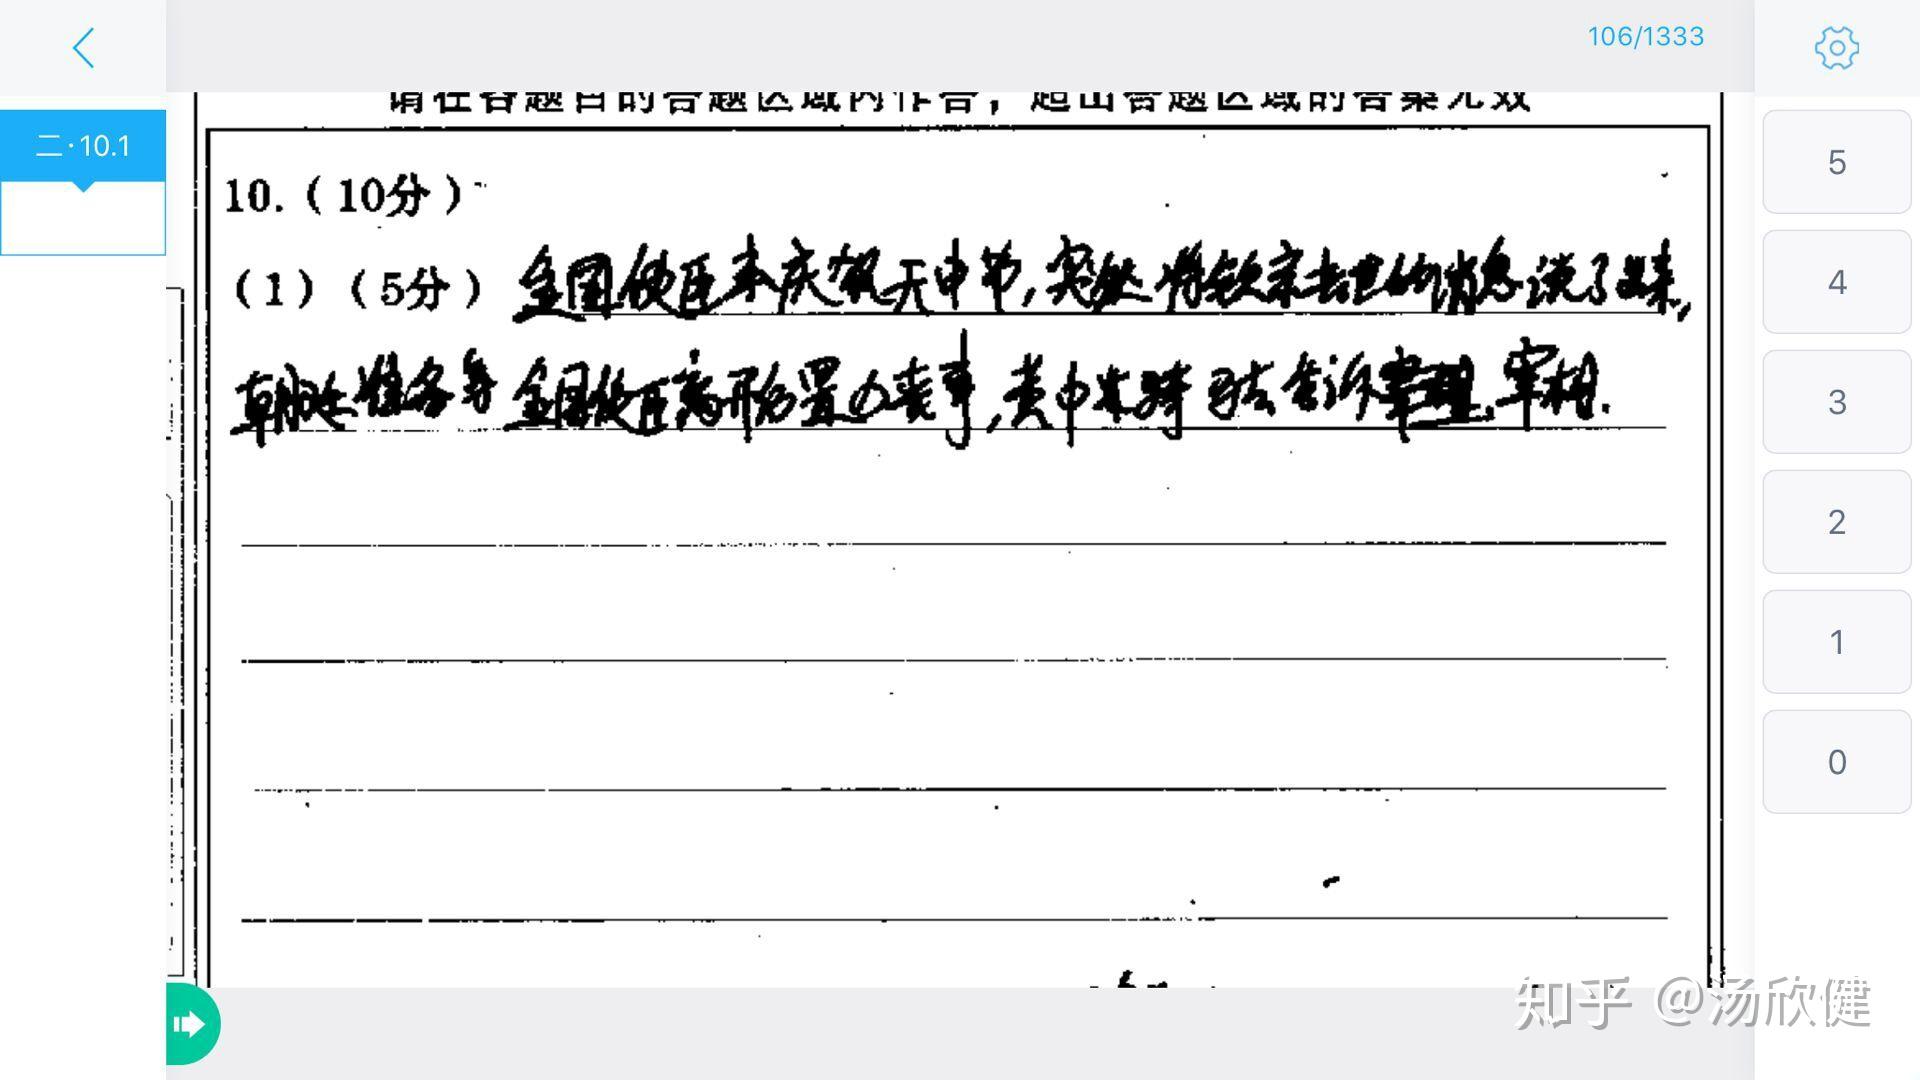 106/1333
请在各题目的答题区域内作答，超出答题区域的答案无效
二·10.1
10.（10分）
（1）（5分）金国使臣来庆祝天中节，突然将钦宗去世的消息说了出来，
朝廷准备等金国使臣离开后置办丧事，黄中来骑马去告诉宰相.
5
4
3
2
1
0
知乎 @汤欣健